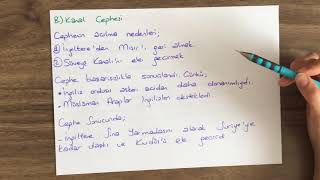 B) Kanal Cephesi
Cephenin açılma nedenleri;
① İngiltere'den Mısır'ı geri almak.
② Süveyş Kanalını ele geçirmek
Cephe başarısızlıkla sonuçlandı. Çünkü;
• İngiliz ordusu askeri açıdan daha donanımlıydı.
• Müslüman Araplar İngilizleri destekledi.
Cephe Sonucunda;
- İngiltere Sina Yarımadasını alarak Suriye'ye
kadar ilerledi ve Kudüs'ü ele geçirdi